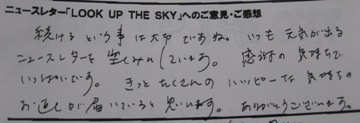 ニュースレター「LOOK UP THE SKY」へのご意見・ご感想
続けるという事は大切ですね。いつも元気が出る
ニュースレターを楽しみにしています。感謝の気持ちで
いっぱいです。きっとたくさんのハッピーな気持ちの
お返しが届いていると思います。ありがとうございます。